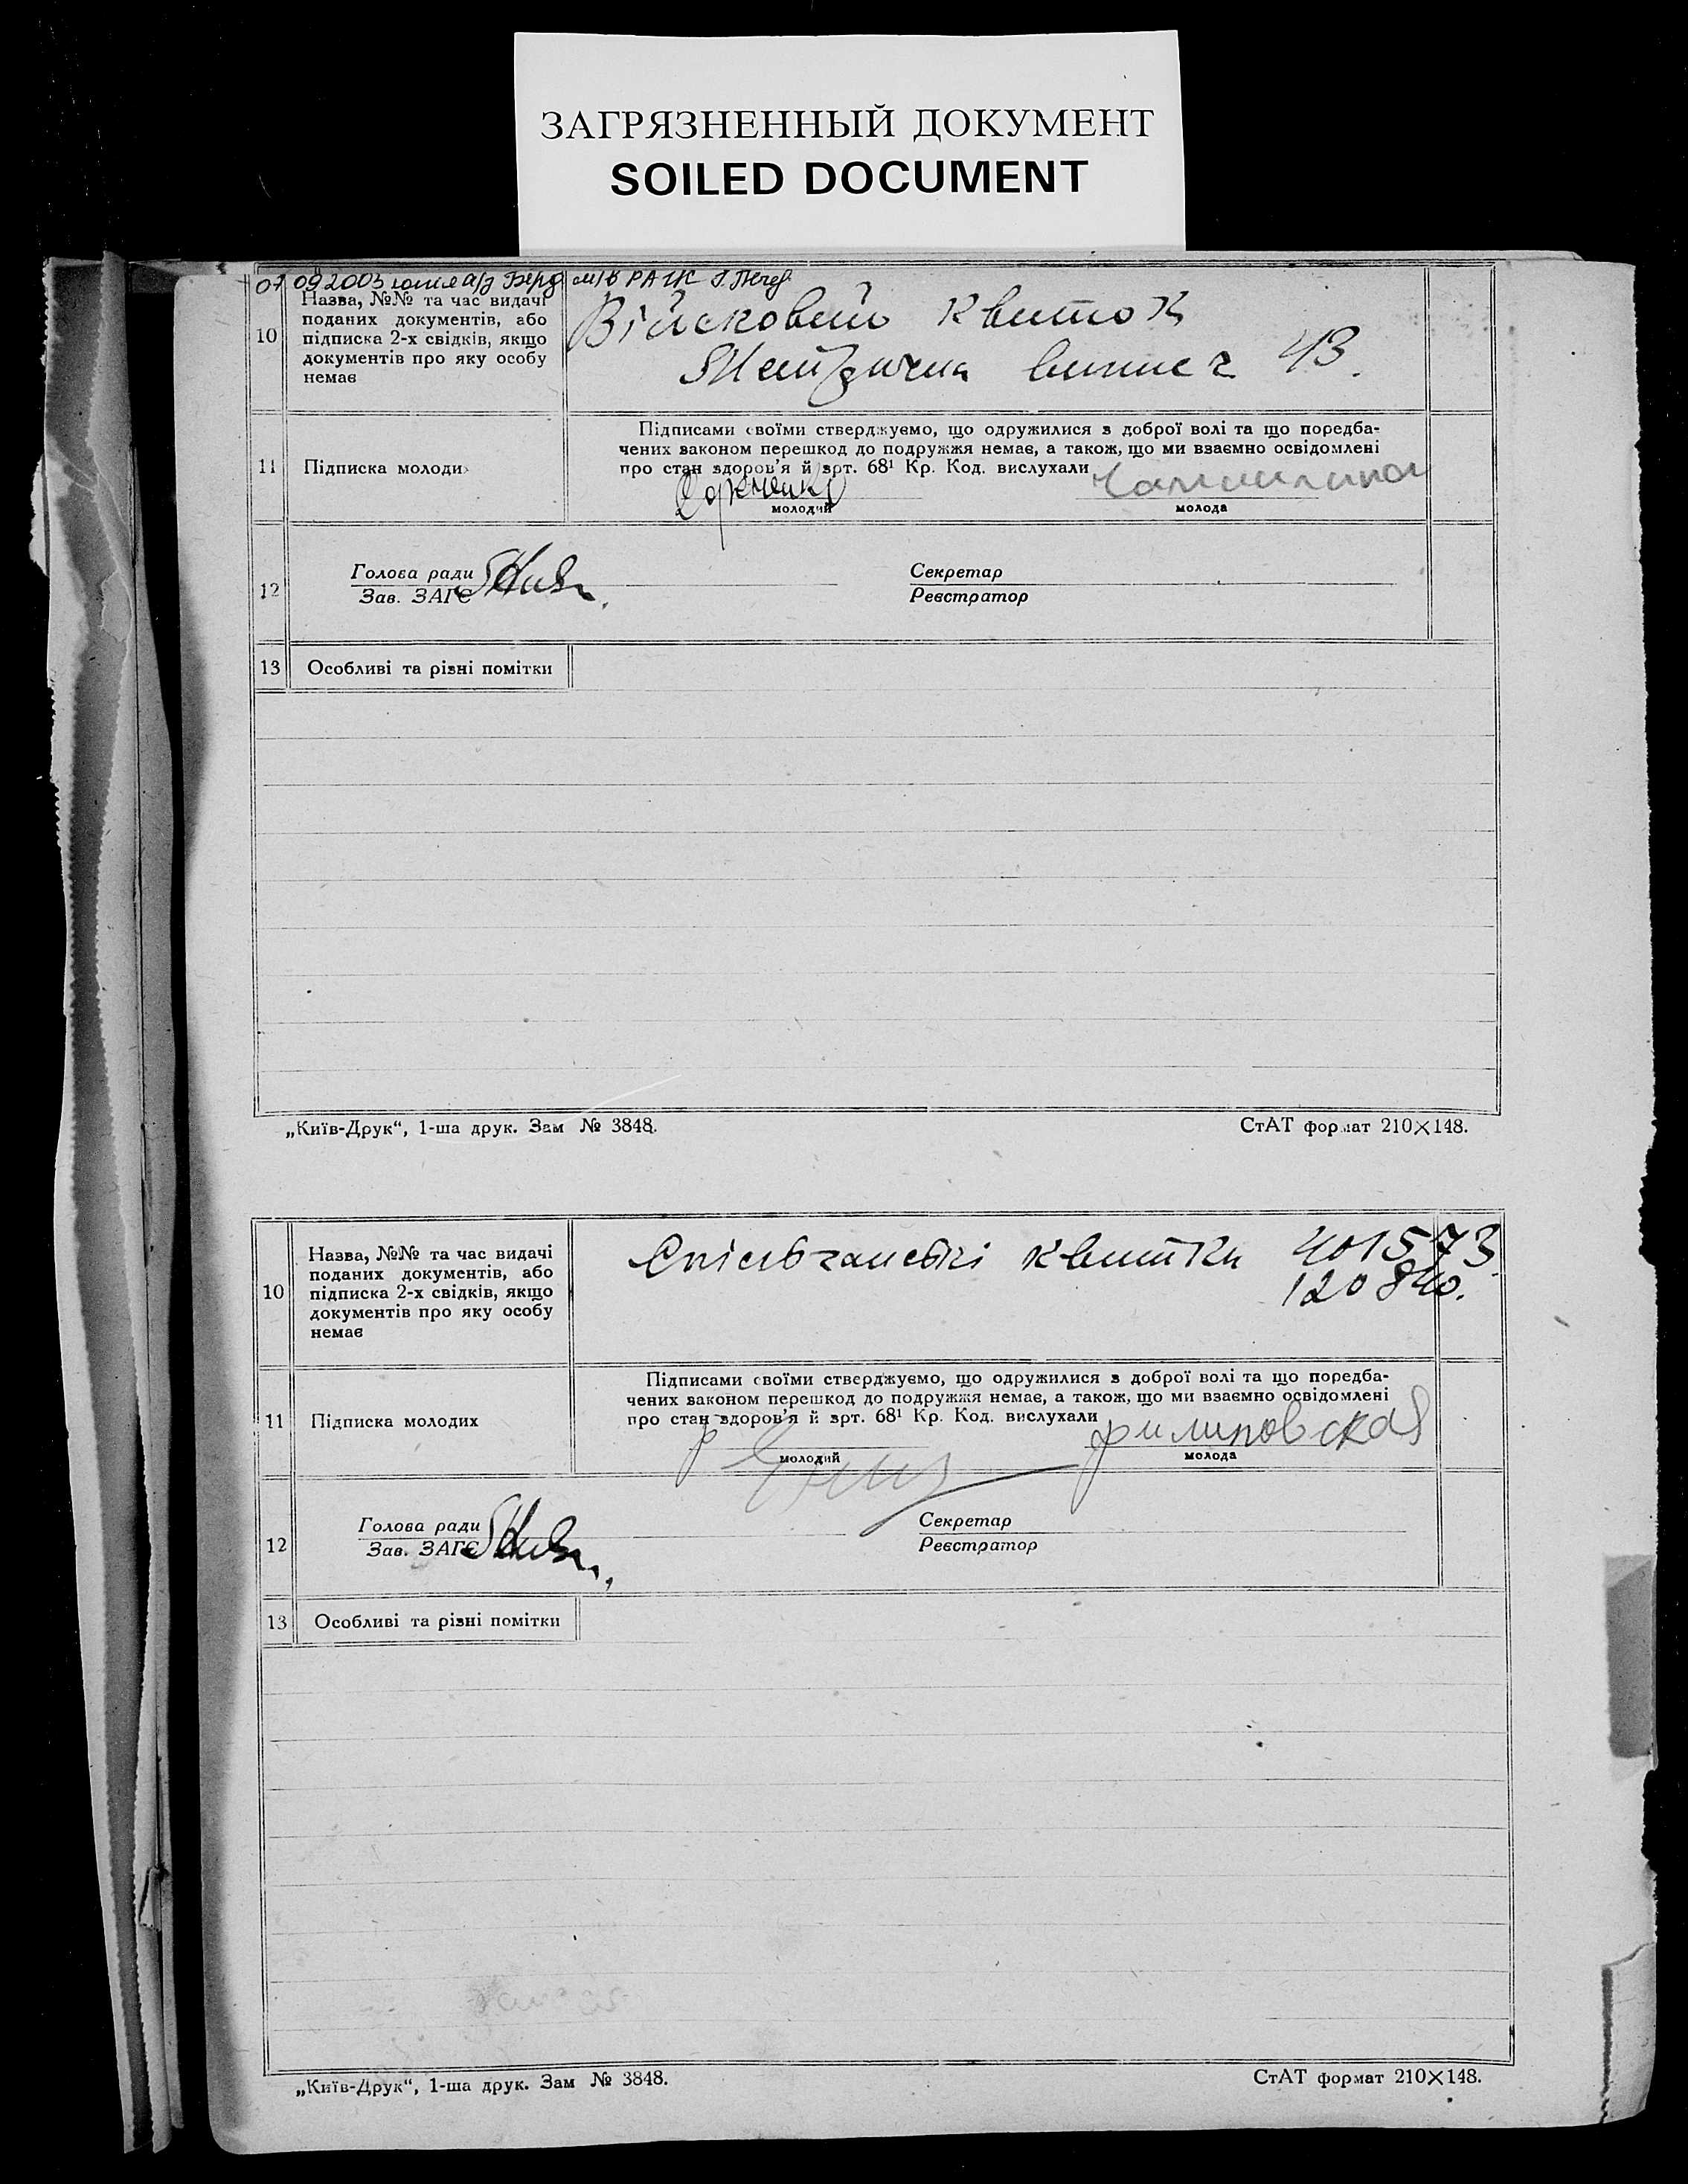 ЗАГРЯЗНЕННЫЙ ДОКУМЕНТ
SOILED DOCUMENT
01 09 2003 копія а/з Берд м/в РАГК
10
Назва, №№ та час видачі
поданих документів, або
підписка 2-х свідків, якщо
документів про яку особу
немає
Військовий квиток
Метрична випись 43.
11
Підписка молоди
Підписами своїми стверджуємо, що одружилися з доброї волі та що поредба-
чених законом перешкод до подружжя немає, а також, що ми взаємно освідомлені
про стан здоров'я й арт. 68¹ Кр. Код. вислухали
молодий
молода
12
Голова ради
Зав. ЗАГС
Секретар
Реєстратор
13
Особливі та різні помітки
„Київ-Друк“, 1-ша друк. Зам № 3848.
СтАТ формат 210×148.
10
Назва, №№ та час видачі
поданих документів, або
підписка 2-х свідків, якщо
документів про яку особу
немає
Спілчанські квитки 401573
120840.
11
Підписка молодих
Підписами своїми стверджуємо, що одружилися з доброї волі та що поредба-
чених законом перешкод до подружжя немає, а також, що ми взаємно освідомлені
про стан здоров'я й арт. 68¹ Кр. Код. вислухали
филиповская
молодий
молода
12
Голова ради
Зав. ЗАГС
Секретар
Реєстратор
13
Особливі та різні помітки
„Київ-Друк“, 1-ша друк. Зам № 3848.
СтАТ формат 210×148.